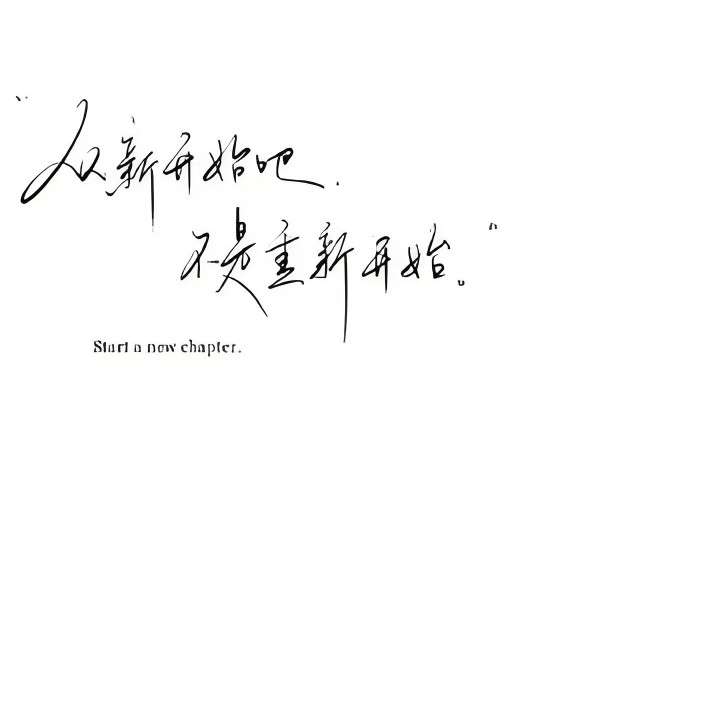 “从新开始吧.
不是重新开始。”
Start a new chapter.